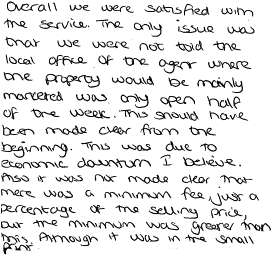 Overall we were satisfied with
the service. The only issue was
that we were not told the
local office of the agent where
the property would be mainly
marketed was only open half
of the week. This should have
been made clear from the
beginning. This was due to
economic downturn I believe.
Also it was not made clear that
there was a minimum fee, just a
percentage of the selling price,
but the minimum was greater than
this. Although it was in the small
print.